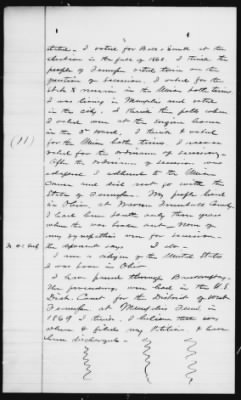 stitute. I voted for Bell & Everett at the
election in the fall of 1860. I think the
people of Tennessee voted twice on the
question of secession. I voted for the
State to remain in the Union both times
I was living in Memphis and voted
in the city. I think the polls where
I voted were at the engine house
in the 3rd Ward. I think I voted
for the Union both times. I never
voted for the ordinance of secession.
After the ordinance of secession was
adopted I adhered to the Union
Cause and did not go with the
State of Tennessee. My people lived
in Ohio, at Warren Trumbull County.
I had been south only two years
when the war broke out. None of
my sympathies were for secession
the deponent says I do
I am a citizen of the United States
I was born in Ohio
I have passed through Bankruptcy.
The proceedings were had in the U.S.
Dist. Court for the District of West
Tennessee at Memphis Tenn in
1869 I think. I believe that was
when I filed my Petition. I have
been discharged.
(11)